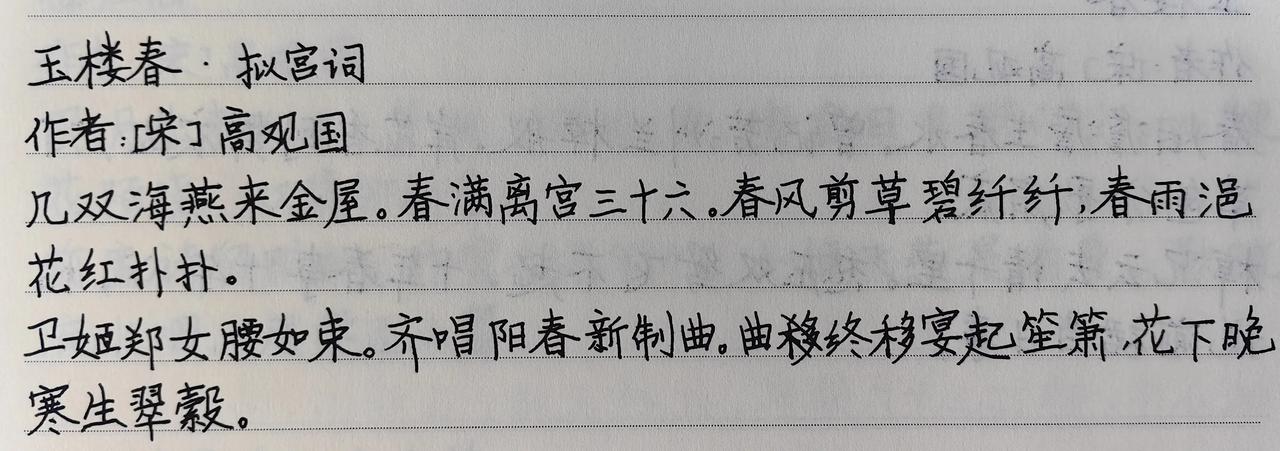 玉楼春·拟宫词
作者:[宋]高观国
几双海燕来金屋。春满离宫三十六。春风剪草碧纤纤,春雨浥
花红扑扑。
卫姬郑女腰如束。齐唱阳春新制曲。曲移终移宴起笙箫,花下晚
寒生翠縠。